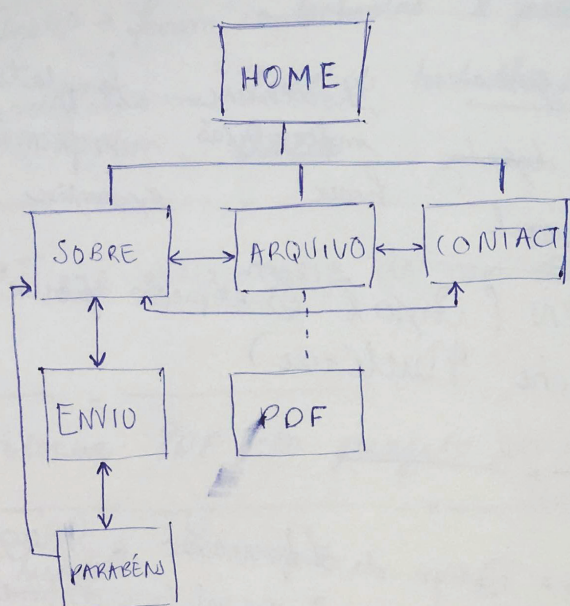 HOME
SOBRE
ARQUIVO
CONTACT
ENVIO
PDF
PARABÉNS